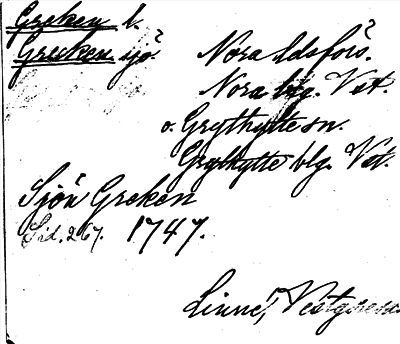 Greken l.
Grecken sjö? Nora ldsförs.
Nora bg. Vst.
o. Grythytte sn.
Grythytte blg. Vst.
Sjön Greken
Sid. 267. 1747.
Linné, Vestgöresa